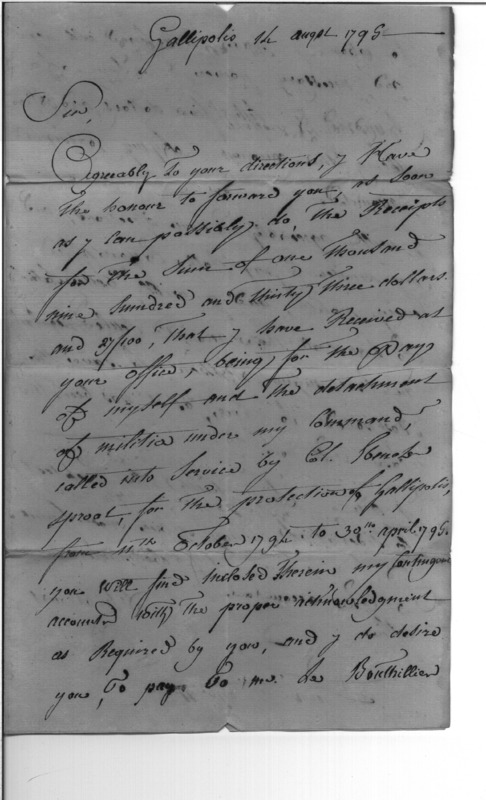 Gallipolis 14 augst 1795
Sir,
Agreeably To your directions, y Have
The honour to forward you, as soon
as y can possibly do, The Receipts
for The Sume of one Thousand
nine hundred and Thirty Three dollars
and /100, That y have Received at
your office, being for The pays
of myself and The detachment
of militia under my Command,
called into Service by Col. Ebenezer
Sproat, for The protection of Gallipolis,
from 11th October 1794 to 30th april 1795.
you will find inclosd Therein my Contingent
accounts with The proper acknowledgment
as Required by you, and y do desire
you, To pay To mr. Le Bouthillier